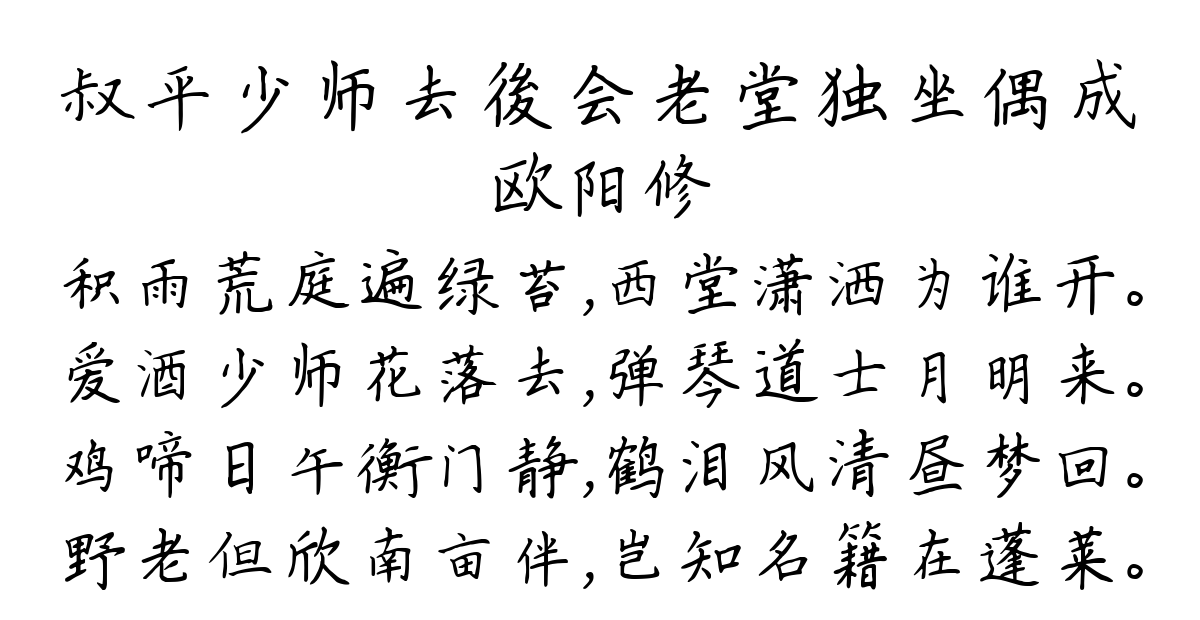 叔平少师去後会老堂独坐偶成
欧阳修
积雨荒庭遍绿苔,西堂潇洒为谁开。
爱酒少师花落去,弹琴道士月明来。
鸡啼日午衡门静,鹤泪风清昼梦回。
野老但欣南亩伴,岂知名籍在蓬莱。